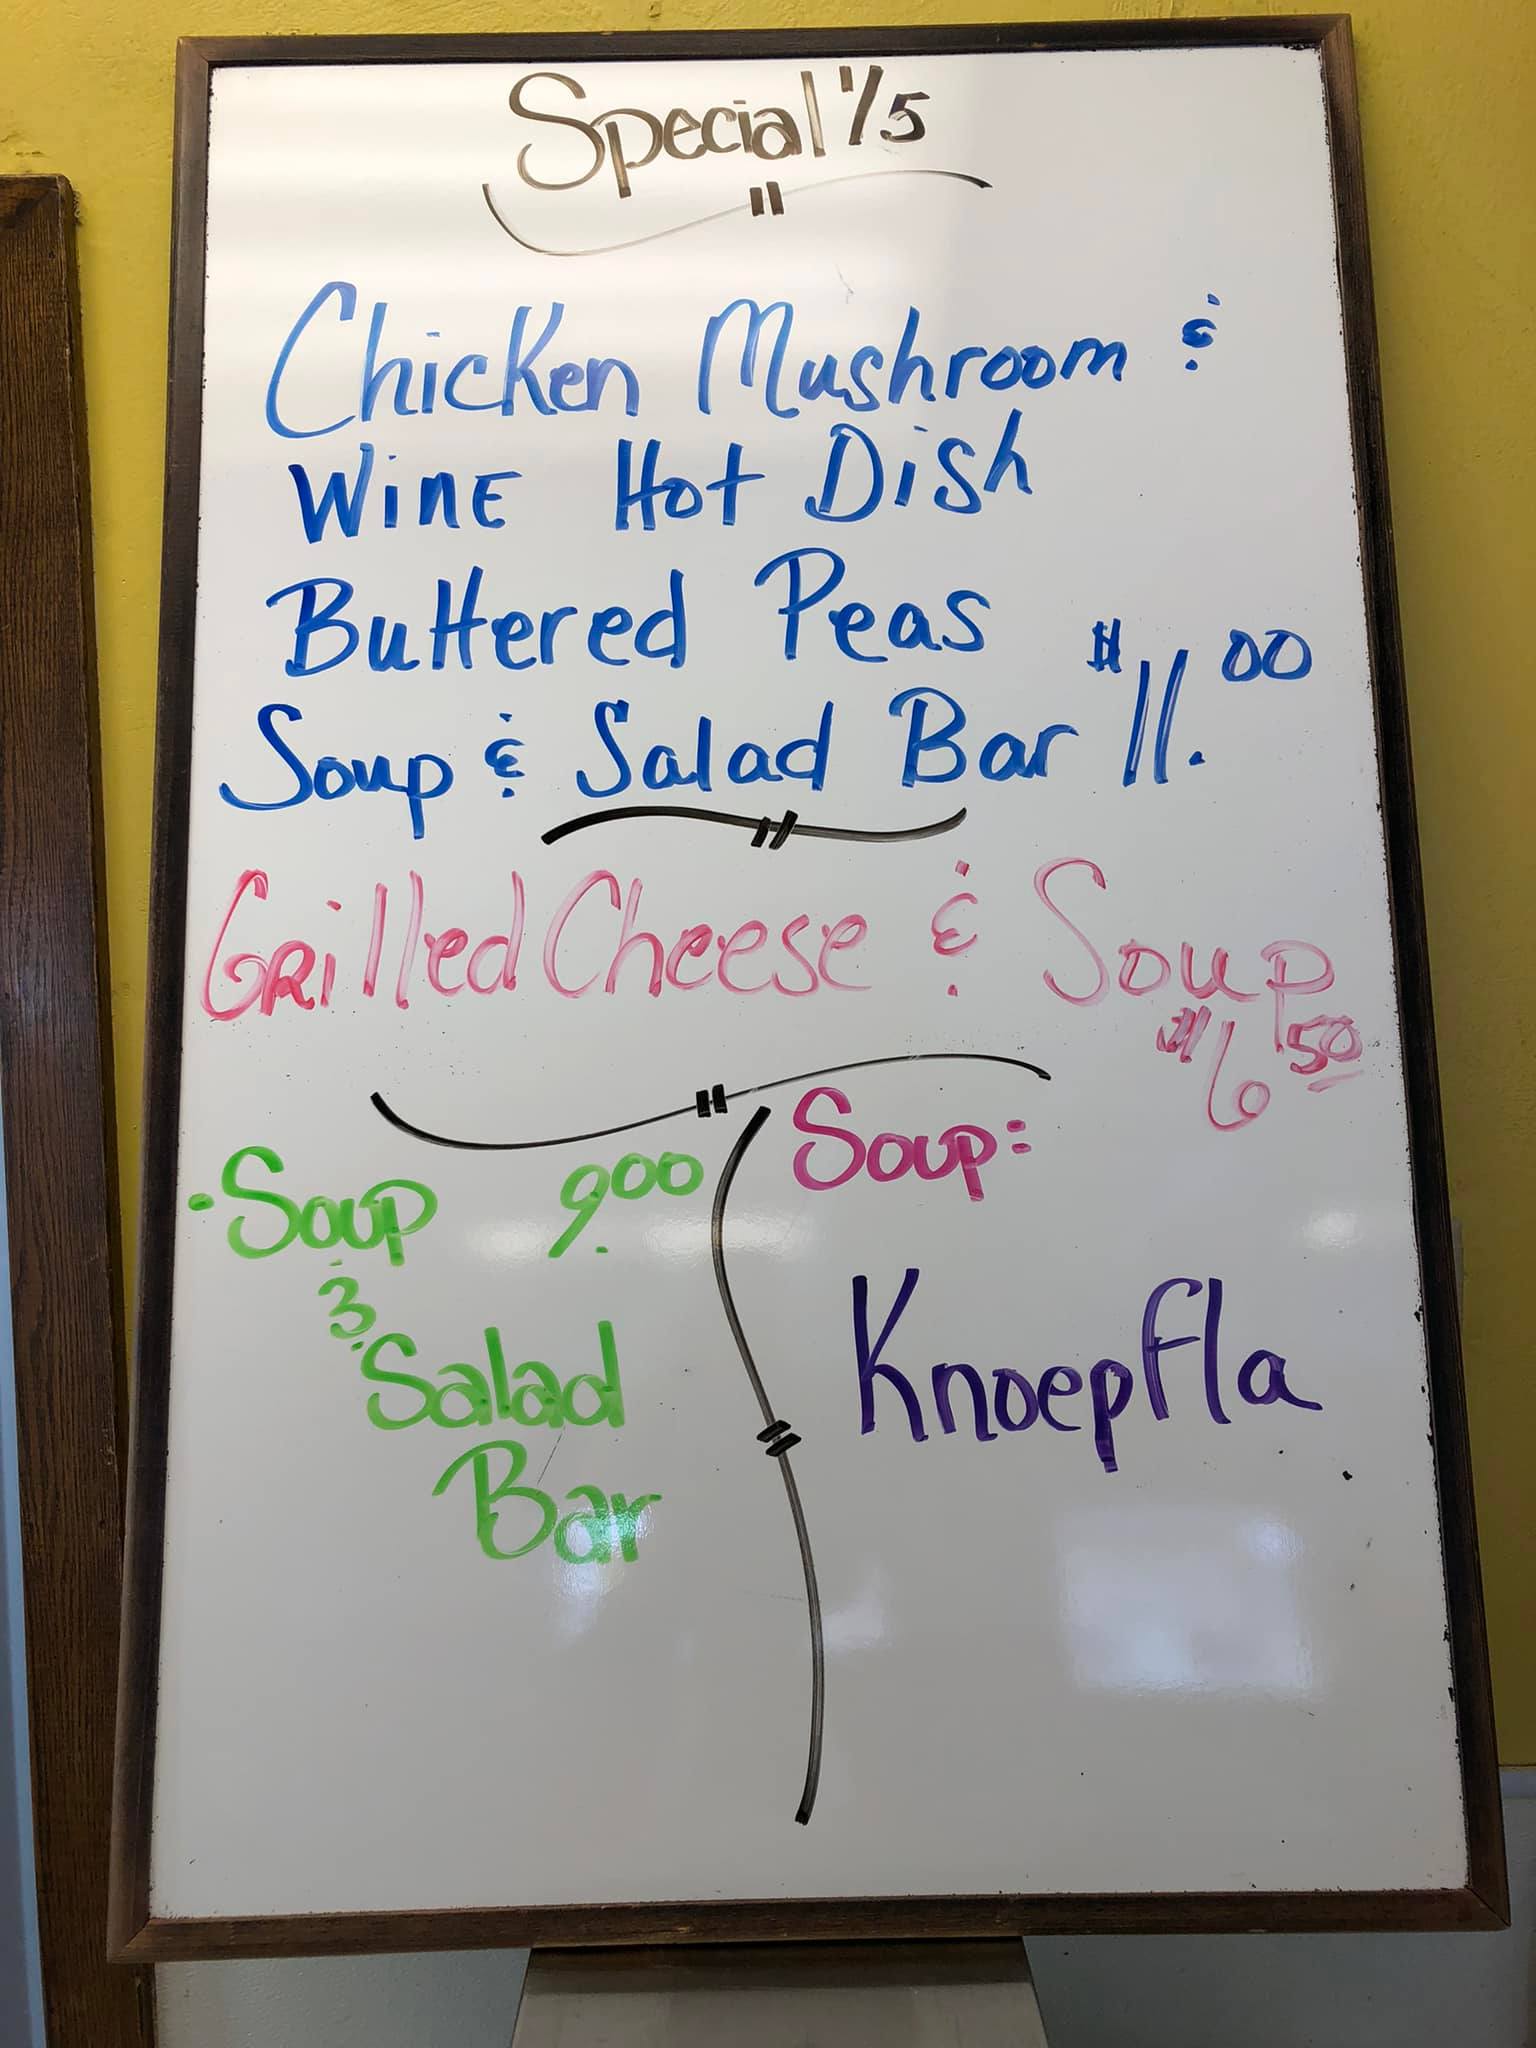 Special 1/5
Chicken Mushroom &
Wine Hot Dish
Buttered Peas
Soup & Salad Bar $11.00
Grilled Cheese & Soup
$6.50
Soup 9.00
&
Salad
Bar
Soup:
Knoepfla